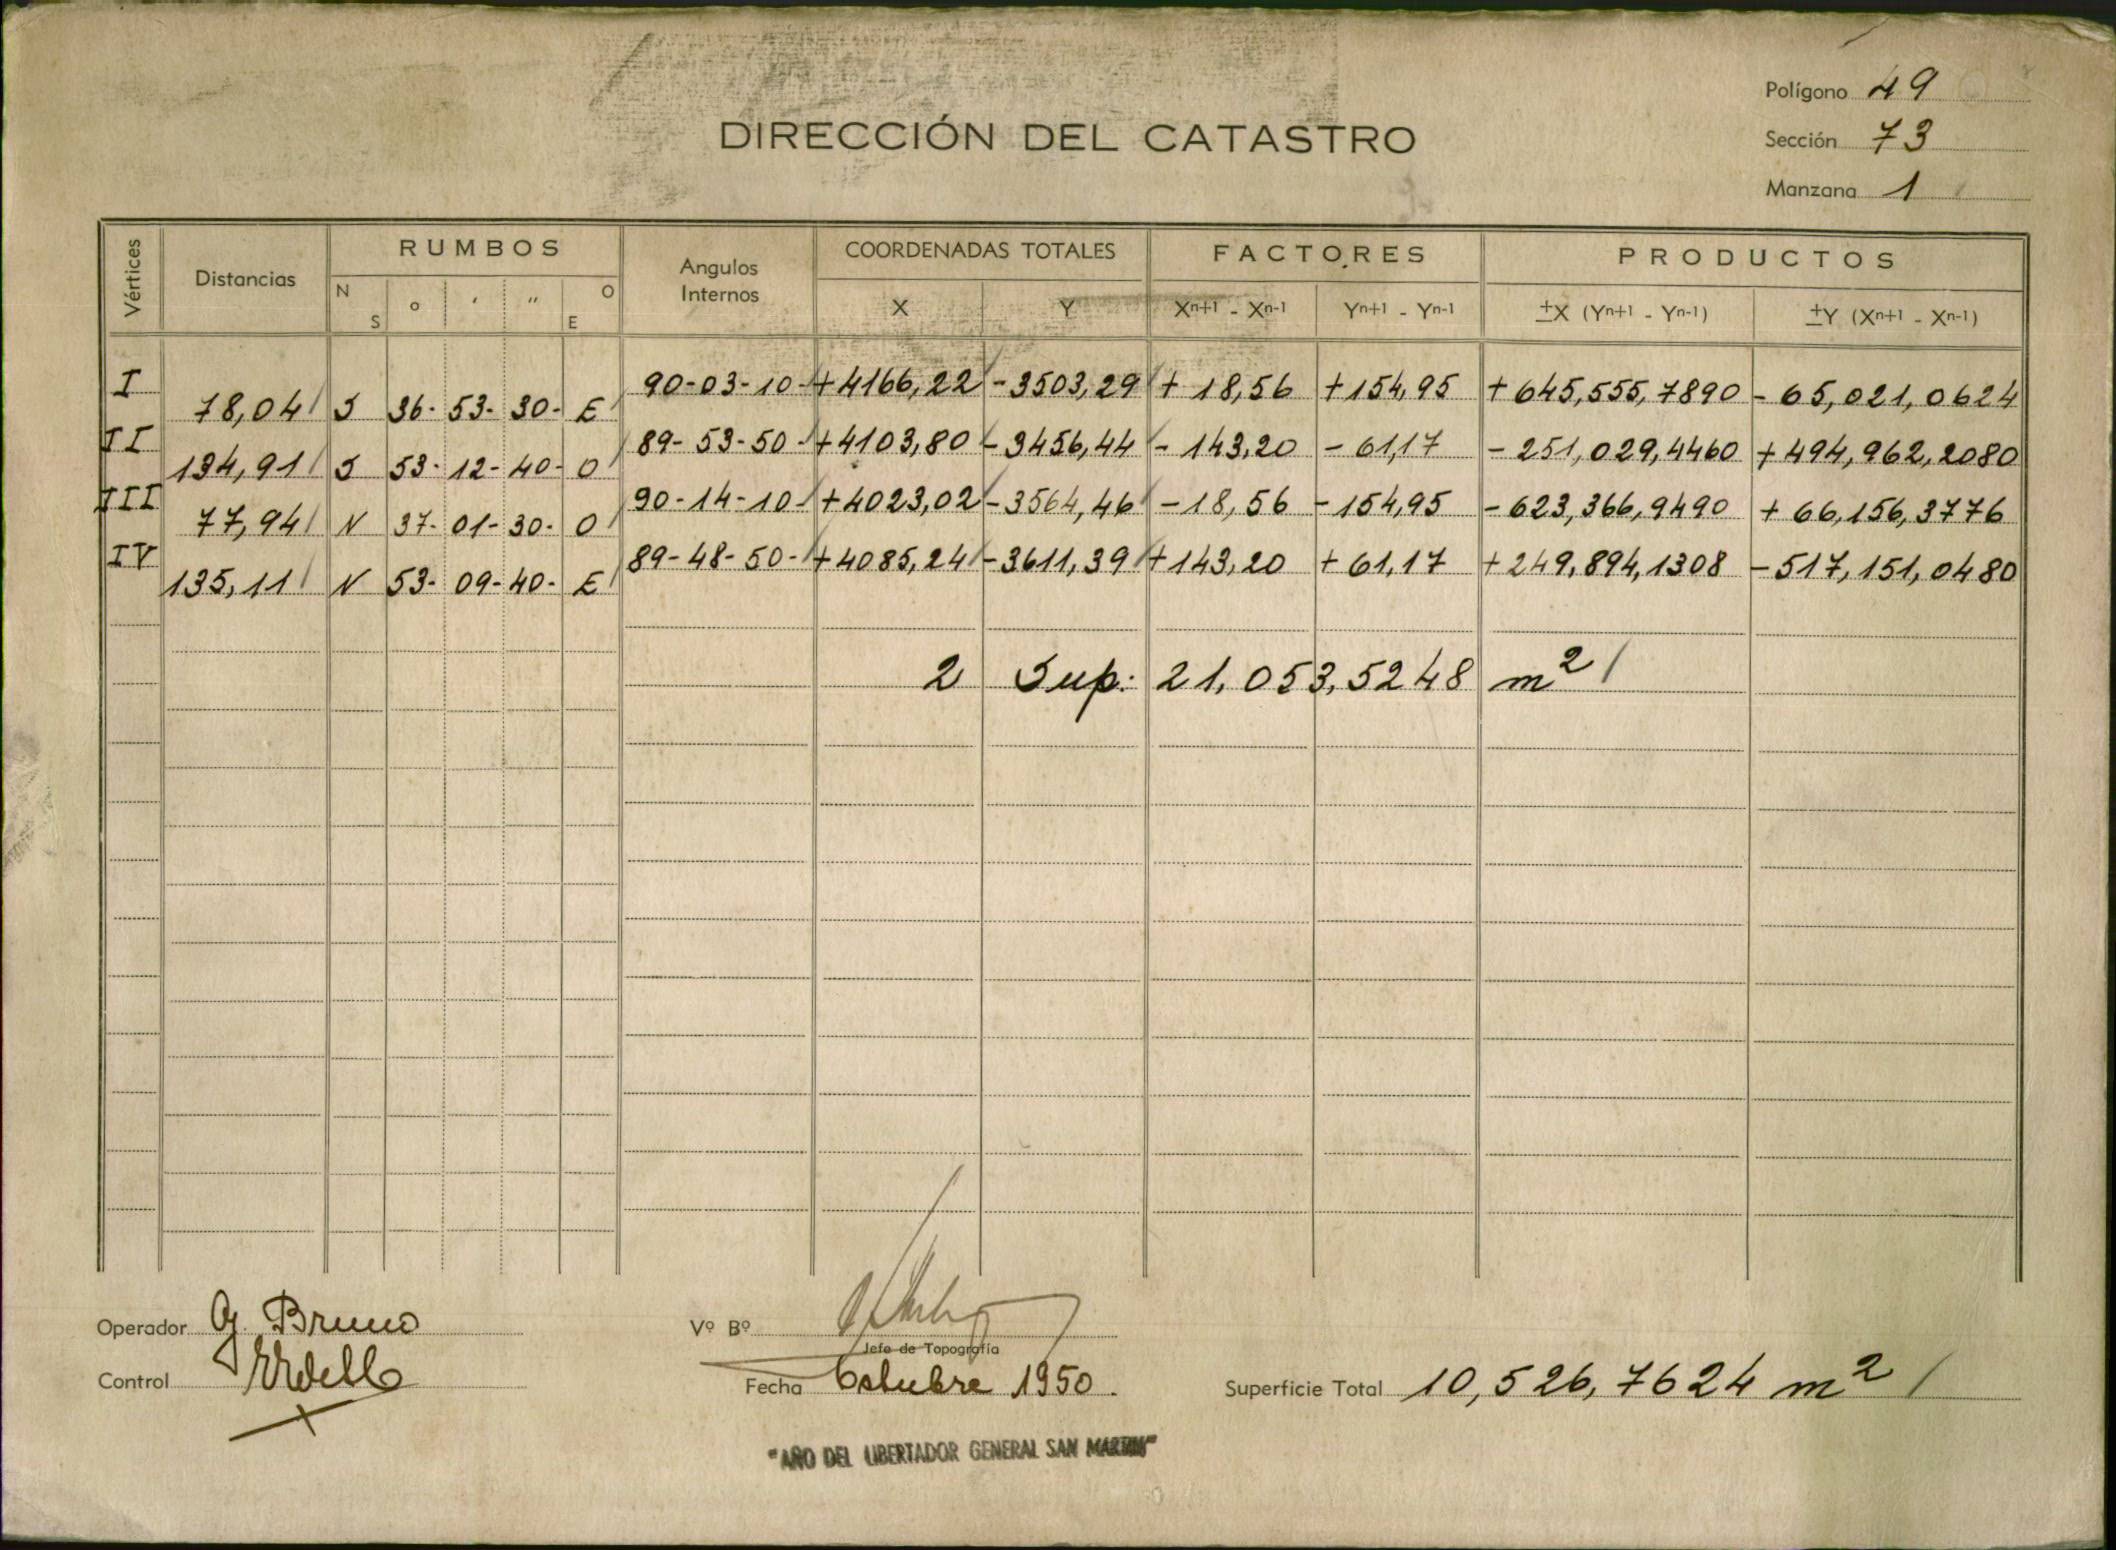 Polígono 49
DIRECCIÓN DEL CATASTRO
Sección 73
Manzana 1
Vértices Distancias RUMBOS Angulos Internos COORDENADAS TOTALES FACTORES PRODUCTOS
N S ° ' " O E X Y Xn+1 - Xn-1 Yn+1 - Yn-1 ±X (Yn+1 - Yn-1) ±Y (Xn+1 - Xn-1)
I 90-03-10- +4166,22 -3503,29 + 18,56 +154,95 +645,555,7890 - 65,021,0624
78,04 S 36- 53- 30- E
II 89-53-50- +4103,80 -3456,44 - 143,20 - 61,17 - 251,029,4460 +494,962,2080
134,91 S 53- 12- 40- O
III 90-14-10- +4023,02 -3564,46 -18,56 -154,95 -623,366,9490 + 66,156,3776
77,94 N 37- 01- 30- O
IV 89-48-50- +4085,24 -3611,39 +143,20 +61,17 +249,894,1308 -517,151,0480
135,11 N 53- 09- 40- E
2 Sup: 21,053,5248 m2
Operador G. Bruno
Vº Bº
Jefe de Topografía
Control
Fecha Octubre 1950.
Superficie Total 10,526,7624 m2
"AÑO DEL LIBERTADOR GENERAL SAN MARTIN"